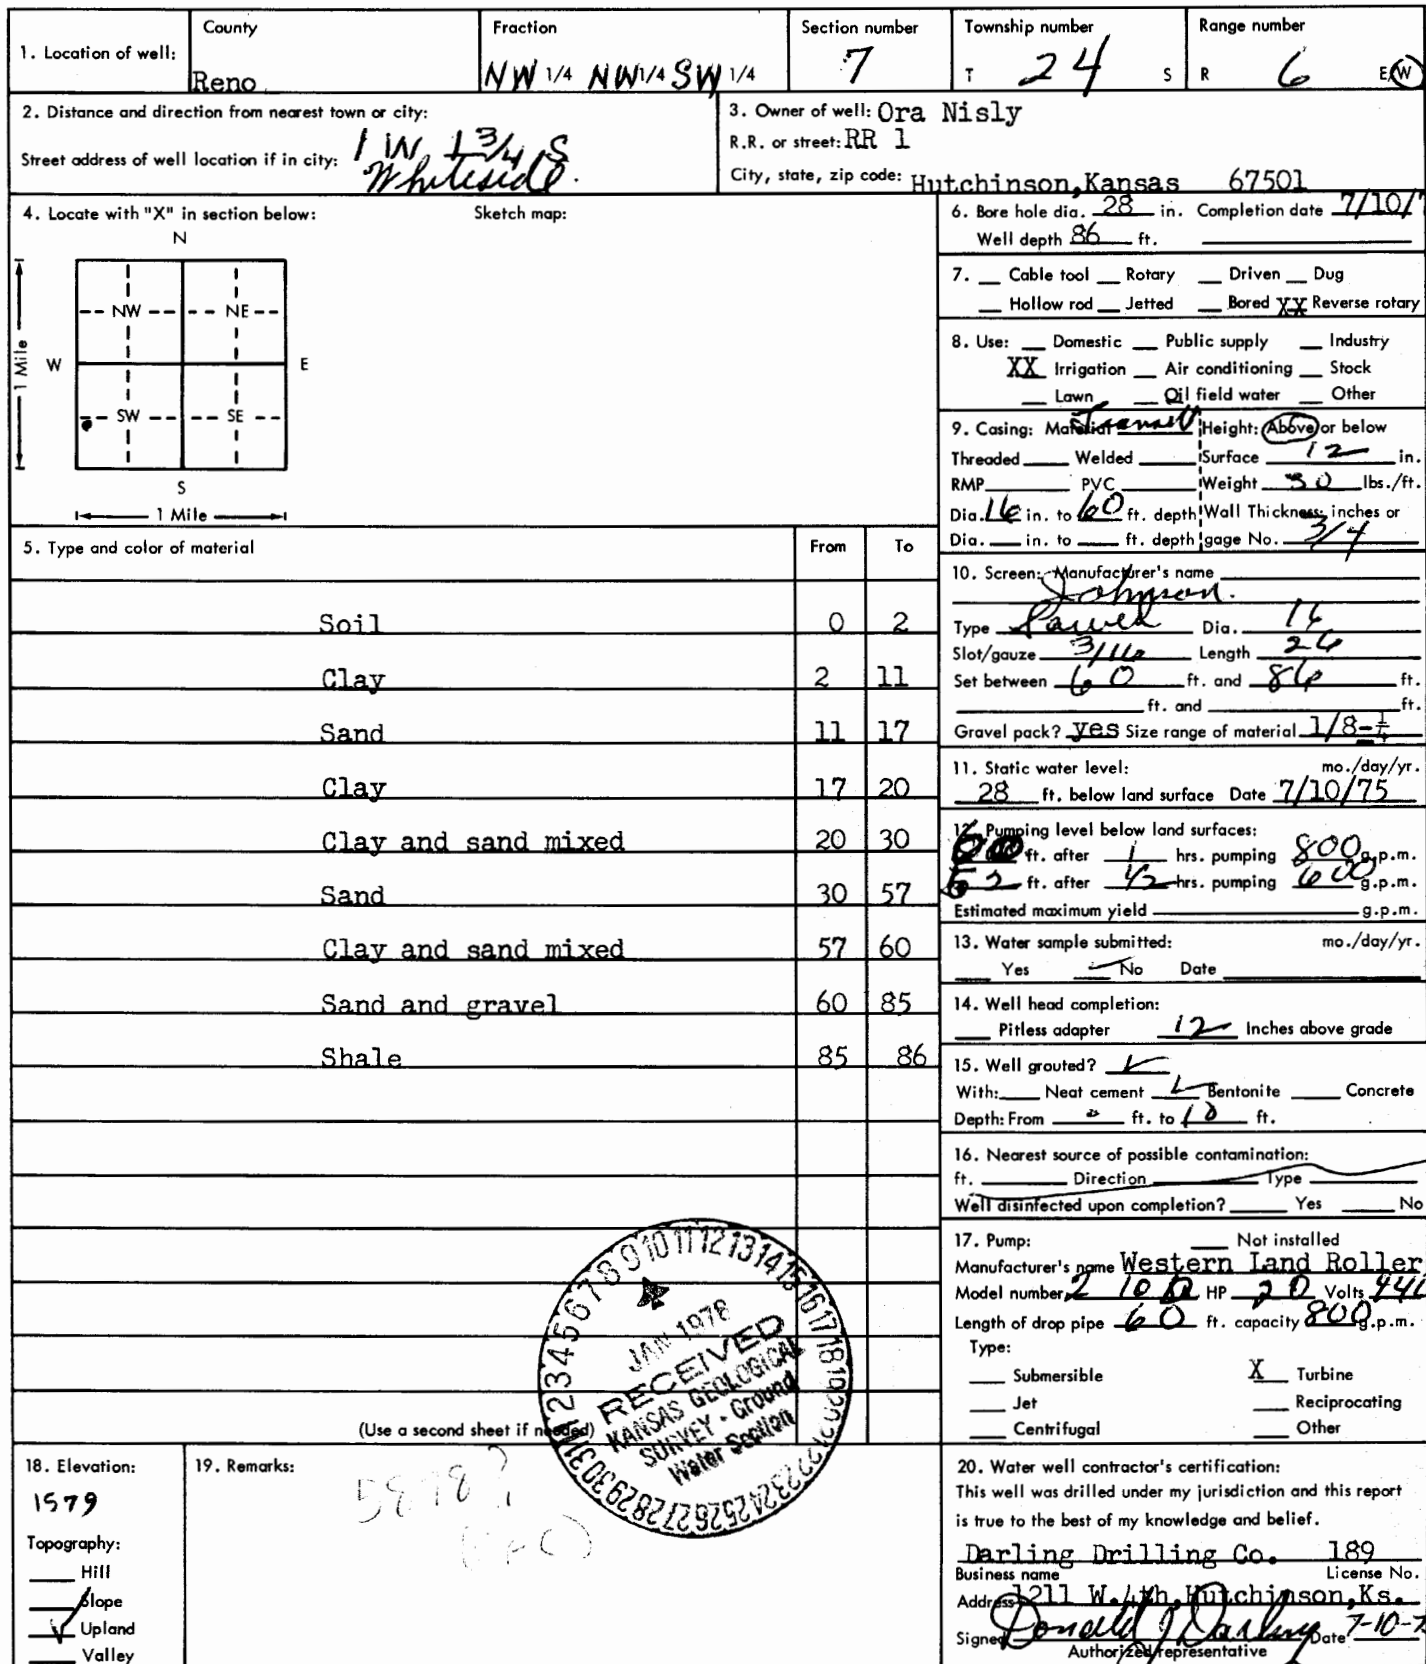 1. Location of well:
County
Reno
Fraction
NW 1/4 NW 1/4 SW 1/4
Section number
7
Township number
T 24 S
Range number
R 6 E/W
2. Distance and direction from nearest town or city:
Street address of well location if in city: 1 W 1 3/4 S
Whiteside.
3. Owner of well: Ora Nisly
R.R. or street: RR 1
City, state, zip code: Hutchinson, Kansas 67501
4. Locate with "X" in section below:
Sketch map:
N
NW NE
W E
SW SE
S
1 Mile
1 Mile
5. Type and color of material From To
Soil 0 2
Clay 2 11
Sand 11 17
Clay 17 20
Clay and sand mixed 20 30
Sand 30 57
Clay and sand mixed 57 60
Sand and gravel 60 85
Shale 85 86
(Use a second sheet if needed)
6. Bore hole dia. 28 in. Completion date 7/10/7
Well depth 86 ft.
7. Cable tool Rotary Driven Dug
Hollow rod Jetted Bored XX Reverse rotary
8. Use: Domestic Public supply Industry
XX Irrigation Air conditioning Stock
Lawn Oil field water Other
9. Casing: Material Height: Above or below
Threaded Welded Surface 12 in.
RMP PVC Weight 30 lbs./ft.
Dia. 16 in. to 60 ft. depth Wall Thickness: inches or
Dia. in. to ft. depth gage No. 3/4
10. Screen: Manufacturer's name
Johnson.
Type Dia. 16
Slot/gauze 3/16 Length 26
Set between 60 ft. and 86 ft.
ft. and ft.
Gravel pack? yes Size range of material 1/8-1/4
11. Static water level: mo./day/yr.
28 ft. below land surface Date 7/10/75
12. Pumping level below land surfaces:
ft. after 1 hrs. pumping 800 g.p.m.
52 ft. after 1/2 hrs. pumping 600 g.p.m.
Estimated maximum yield g.p.m.
13. Water sample submitted: mo./day/yr.
Yes No Date
14. Well head completion:
Pitless adapter 12 Inches above grade
15. Well grouted?
With: Neat cement Bentonite Concrete
Depth: From 0 ft. to 10 ft.
16. Nearest source of possible contamination:
ft. Direction Type
Well disinfected upon completion? Yes No
17. Pump: Not installed
Manufacturer's name Western Land Roller
Model number HP 20 Volts 440
Length of drop pipe 60 ft. capacity 800 g.p.m.
Type:
Submersible X Turbine
Jet Reciprocating
Centrifugal Other
1 2 3 4 5 6 7 8 9 10 11 12 13 14 15 16 17 18 19 20 21 22 23 24 25 26 27 28 29 30 31
JAN 1976
RECEIVED
KANSAS GEOLOGICAL
SURVEY - Ground
Water Section
18. Elevation:
1579
Topography:
Hill
Slope
Upland
Valley
19. Remarks:
20. Water well contractor's certification:
This well was drilled under my jurisdiction and this report
is true to the best of my knowledge and belief.
Darling Drilling Co. 189
Business name License No.
Address 1211 W. 4th, Hutchinson, Ks.
Signed Donald J Darling Date 7-10-7
Authorized representative